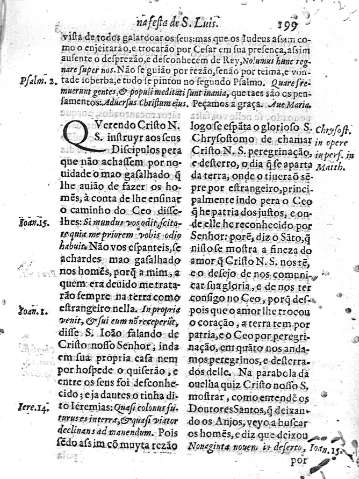 na festa de S. Luis. 199
vista de todos galardoar os seus: mas que os Iudeus assim co-
mo o enjeitarão, e trocarão por Cesar em sua presença, assim
ausente o desprezão, e desconhecem de Rey, Nolumus hunc reg-
nare super nos. Não se guião por rezão, senão por teima, e von-
Psalm. 2.
tade soberba, e tudo se pintou no segundo Psalmo. Quare fre-
muerunt gentes, & populi meditati sunt inania, que taes são os pen-
samentos: Aduersus Christum ejus. Peçamos a graça. Aue Maria.
QVerendo Cristo N.
S. instruyr aos seus
Discipulos pera
que não achassem por no-
uidade o mao gasalhado q̃
lhe auião de fazer os ho-
mẽs, à conta de lhe ensinar
o caminho do Ceo disse-
Ioan. 15.
lhes: Si mundus vos odit, scito-
te quia me priorem vobis odio
habuit. Não vos espanteis, se
achardes mao gasalhado
nos homẽs, porq̃ a mim, a
quem era deuido me trata-
rão sempre na terra como
estrangeiro nella. In propria
Ioan. 1.
venit, & sui eum nõ receperũt,
disse S. Ioão falando de
Cristo nosso Senhor, inda
em sua propria casa nem
por hospede o quiserão, e
entre os seus foi desconhe-
cido; e ja dautes o tinha di-
Iere. 14.
to Ieremias: Quasi colonus fu-
turus es in terra, & quasi viator
declinans ad manendum. Pois
sẽdo assim cõ muyta rezão
logo se espãta o glorioso S.
Chrysost.
in opere
imperf. in
Matth.
Chrysostomo de chamar
Cristo N. S. peregrinação,
e desterro, o dia q̃ se aparta
da terra, onde o tiuerão sẽ-
pre por estrangeiro, princi-
palmente indo pera o Ceo
q̃ he patria dos justos, e on-
de elle he reconhecido por
Senhor: porẽ, diz o Sãto, q̃
nisso se mostra a fineza do
amor q̃ Cristo N. S. nos tẽ,
e o desejo de nos comuni-
car sua gloria, e de nos ter
consigo no Ceo, porq̃ des-
pois que o amor lhe trocou
o coração, a terra tem por
patria, e o Ceo por peregri-
nação, em quãto nos anda-
mos peregrinos, e desterra-
dos delle. Na parabola da
ouelha quiz Cristo nosso S.
mostrar, como entendẽ os
Doutores Santos, q̃ deixan-
do os Anjos, veyo a buscar
os homẽs, e diz que deixou
Nonaginta novem in deserto,
por